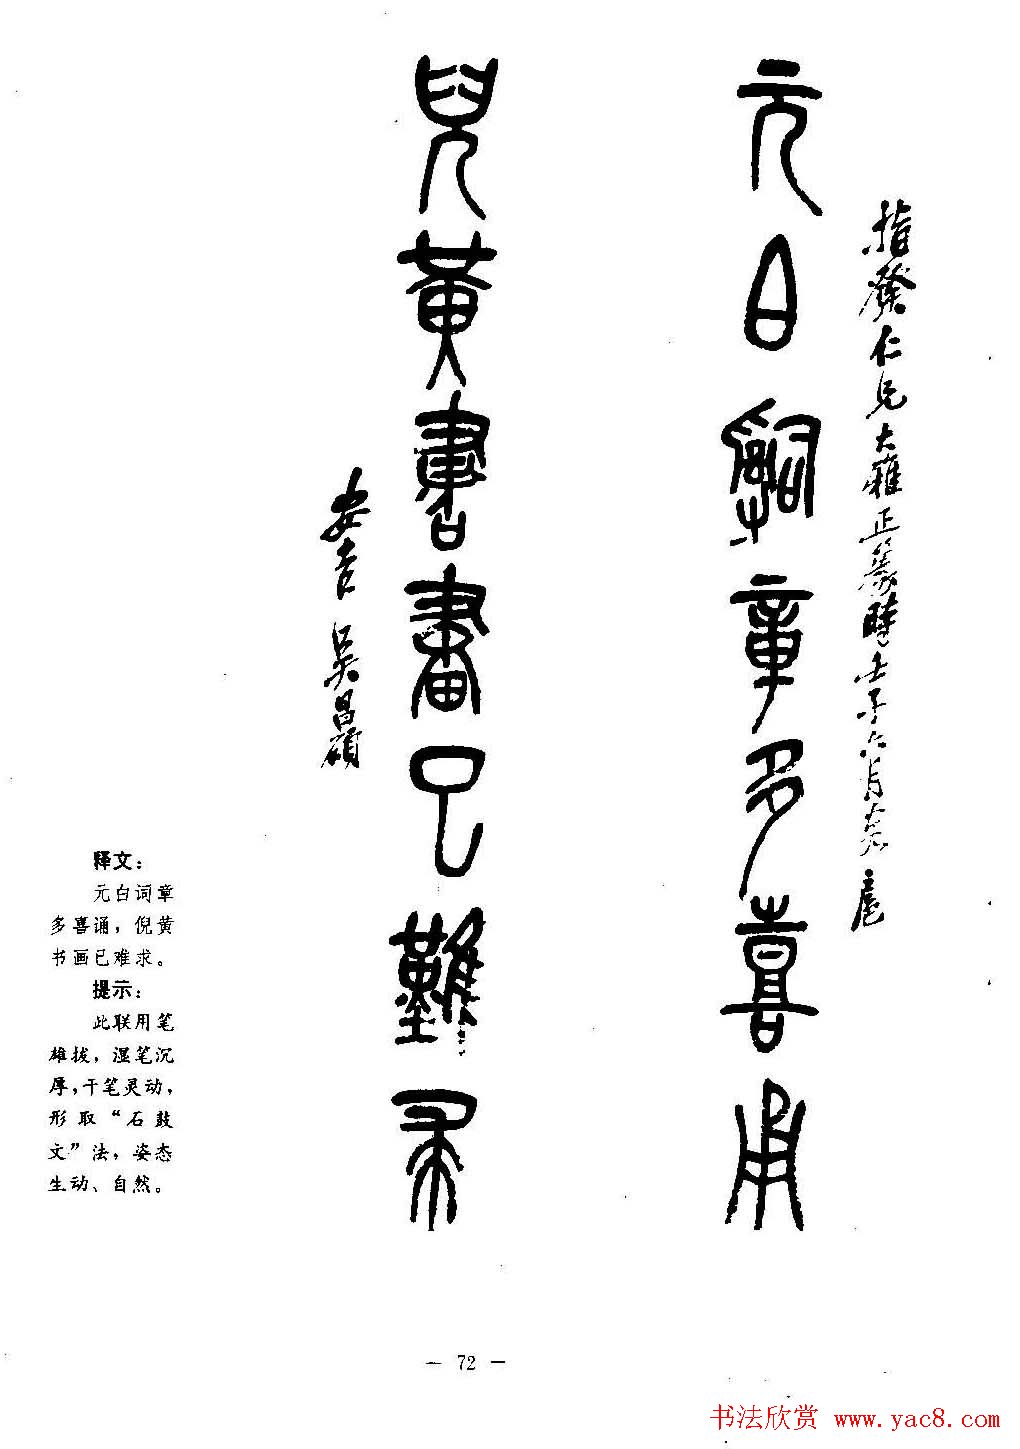 元白辭章多喜甬
指發仁兄大雅正篆時壬子六月
兒黃書畫已難求
安吉吴昌碩
释文：
元白词章
多喜诵，倪黄
书画已难求。
提示：
此联用笔
雄拔，湿笔沉
厚，干笔灵动，
形取“石鼓
文”法，姿态
生动、自然。
— 72 —
书法欣赏 www.yac8.com